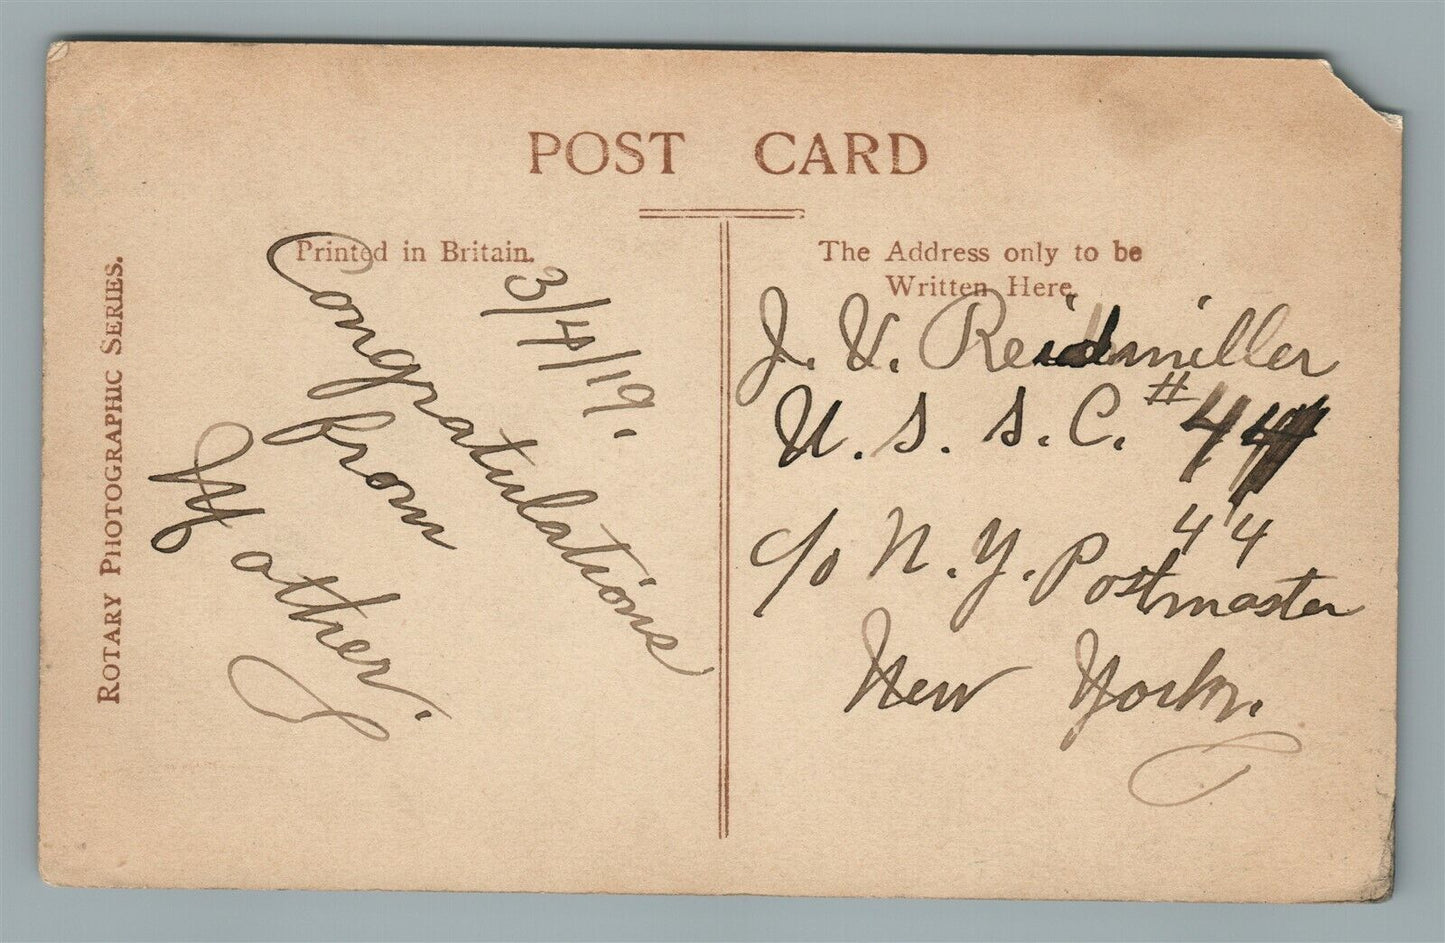 POST CARD
Printed in Britain.
The Address only to be
Written Here.
ROTARY PHOTOGRAPHIC SERIES.
3/4/19.
Congratulations
from
Mother.
J. V. Reidmiller
U. S. S. C. # 44
44
c/o N. Y. Postmaster
New York.